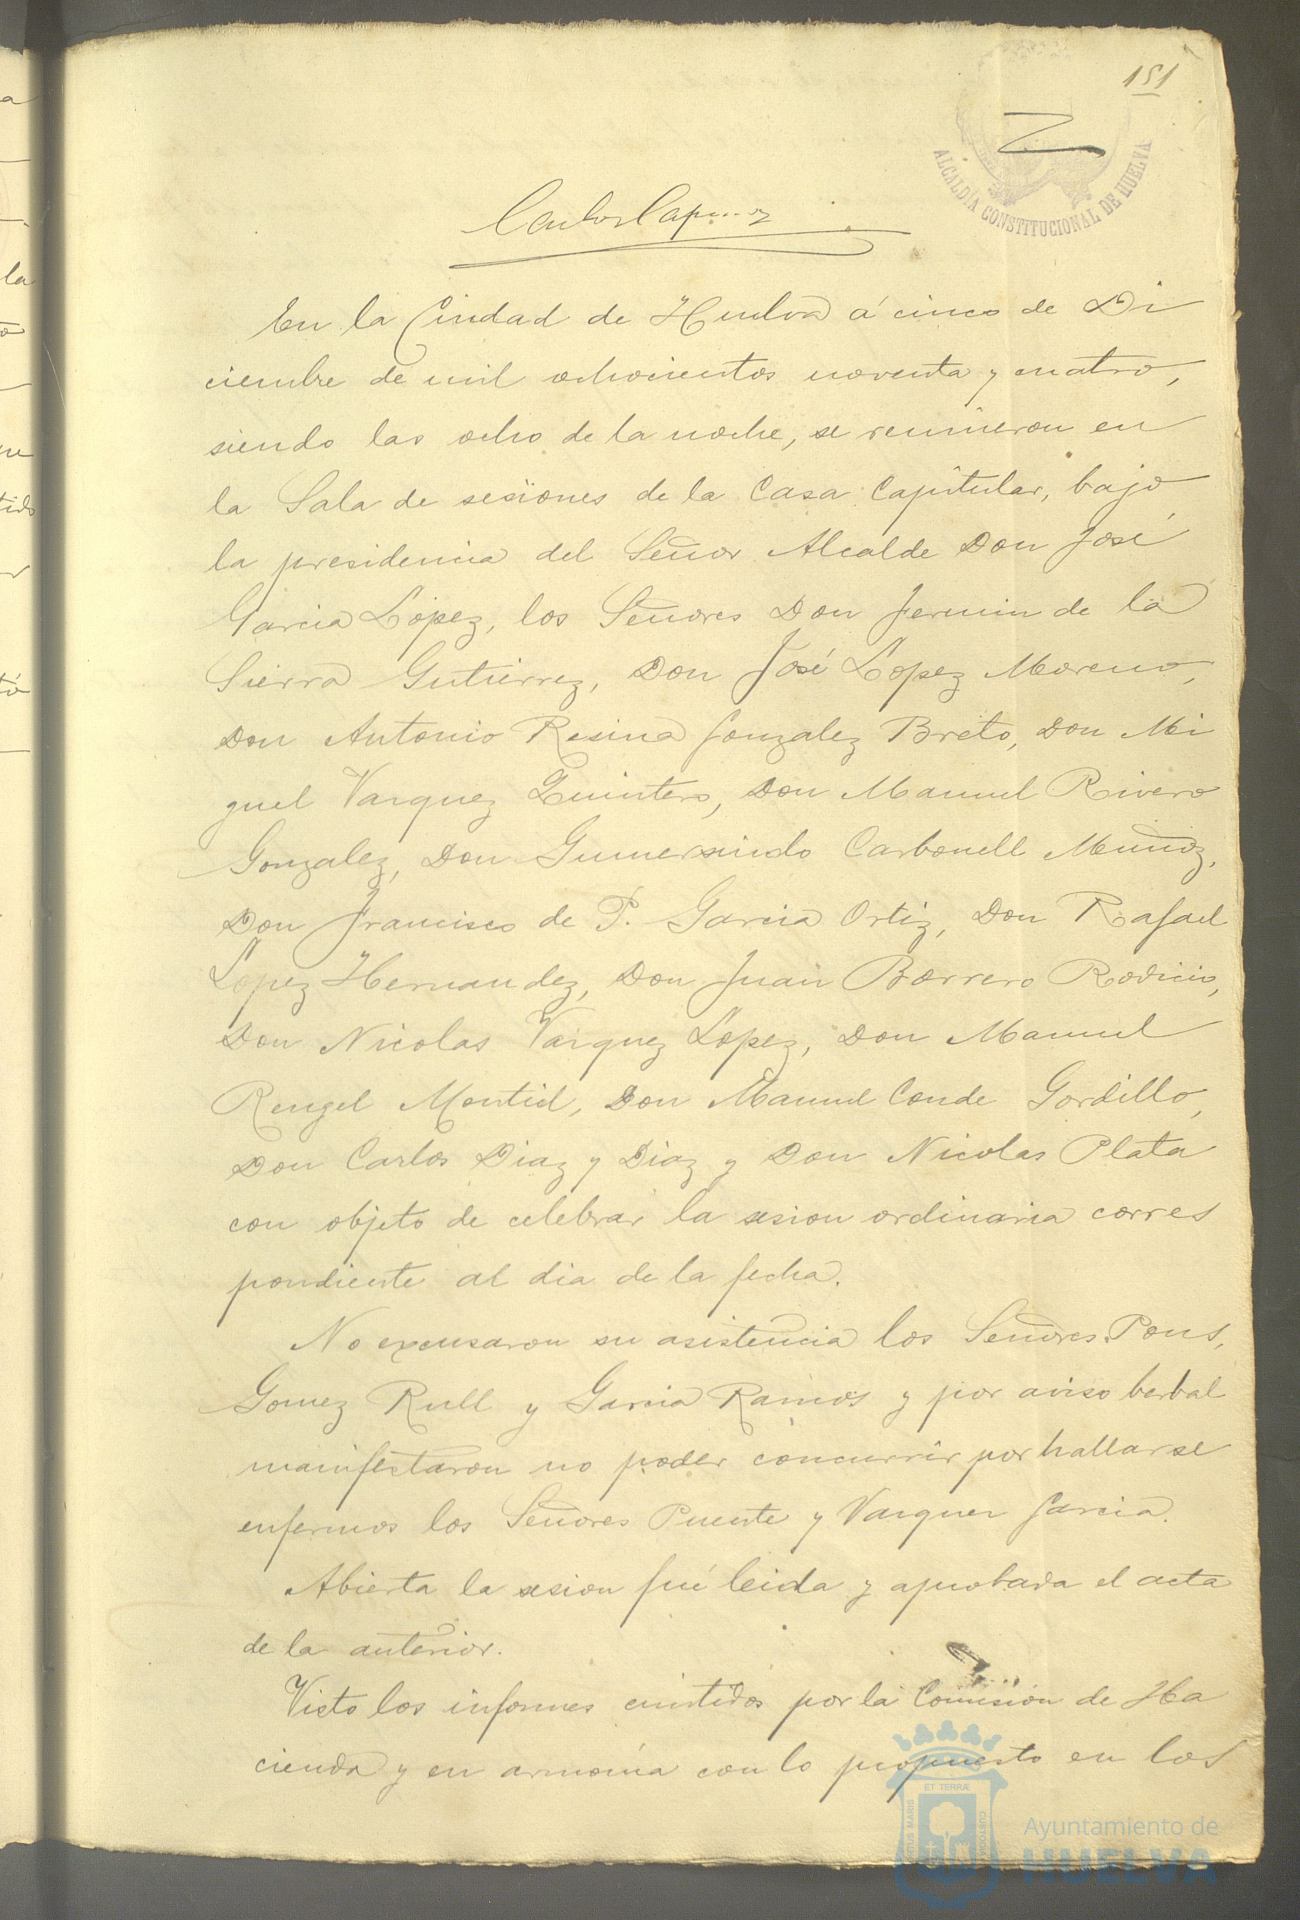 151
ALCALDÍA CONSTITUCIONAL DE HUELVA
Carlos
En la Ciudad de Huelva á cinco de Di
ciembre de mil ochocientos noventa y cuatro,
siendo las ocho de la noche, se reunieron en
la Sala de sesiones de la Casa Capitular, bajo
la presidencia del Señor Alcalde Don José
Garcia López, los Señores Don Fermin de la
Sierra Gutierrez, Don José López Moreno,
Don Antonio Resina Gonzalez Breto, Don Mi
guel Vazquez Quintero, Don Manuel Rivero
Gonzalez, Don Gumersindo Carbonell Muñoz,
Don Francisco de P. Garcia Ortiz, Don Rafael
López Hernandez, Don Juan Borrero Rodicio,
Don Nicolas Vazquez López, Don Manuel
Rengel Montiel, Don Manuel Conde Gordillo,
Don Carlos Diaz y Diaz y Don Nicolas Plata
con objeto de celebrar la sesion ordinaria corres
pondiente al dia de la fecha.
No excusaron su asistencia los Señores Pons,
Gomez Rull y Garcia Ramos y por aviso berbal
manifestaron no poder concurrir por hallarse
enfermos los Señores Puente y Vazquez Garcia.
Abierta la sesion fué leida y aprobada el acta
de la anterior.
Visto los informes emitidos por la Comisión de Ha
cienda y en armonía con lo propuesto en los
ET TERRÆ
PORTUS MARIS
CUSTODIA
Ayuntamiento de
HUELVA